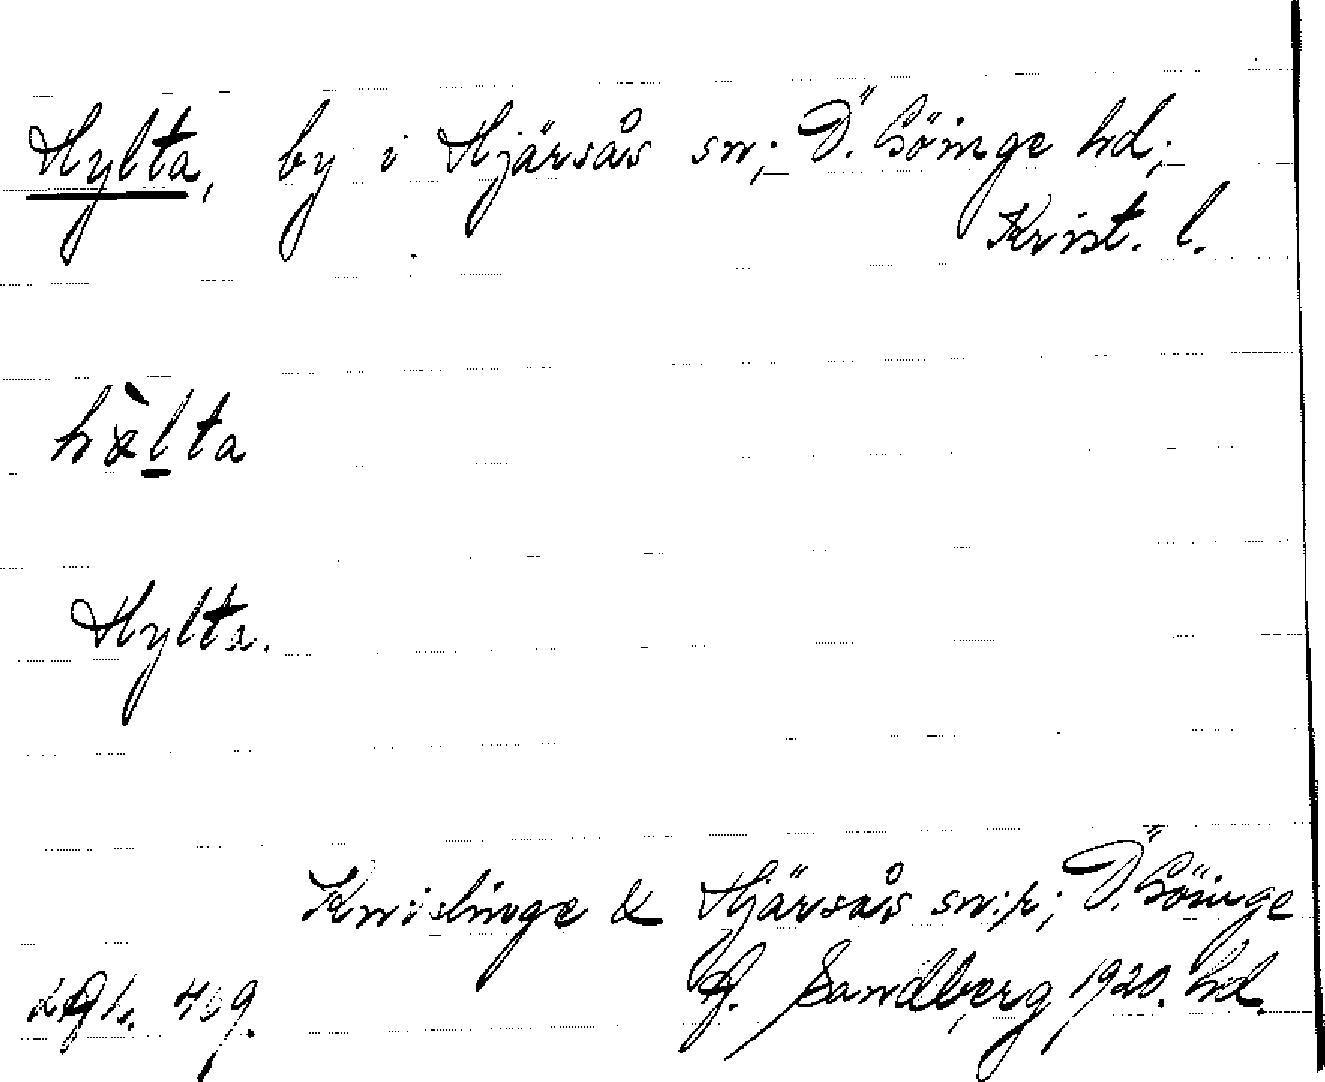 Hylta, by i Hjärsås sn; Ö. Göinge hd;
Krist. l.
hæ̀lta
Hylta.
Knislinge & Hjärsås sn:r; Ö. Göinge
Sandberg 1920. hd.